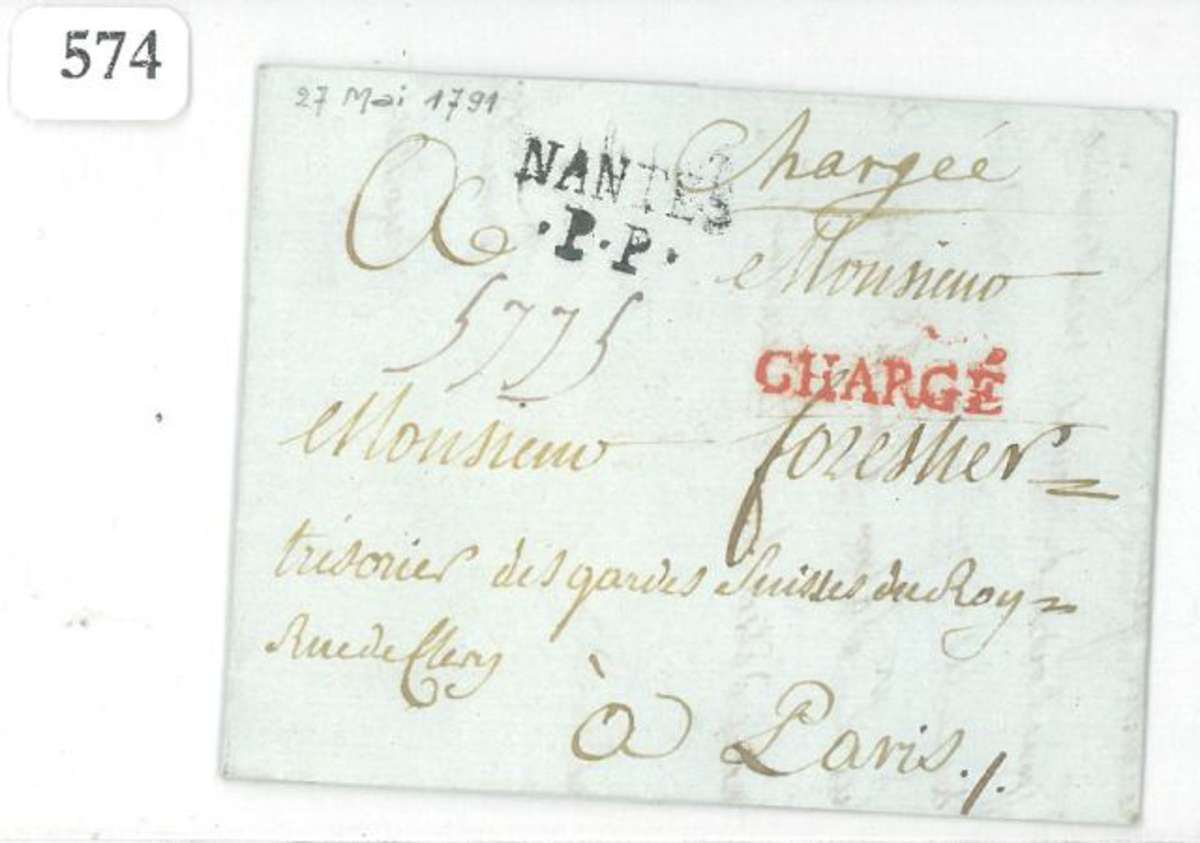 574
27 Mai 1791
Chargeé
NANTES
A Monsieur
·P·P·
5775
CHARGÉ
Monsieur foresther
trésorier des gardes Suisses du Roy
Rue de Clery
à Paris./.